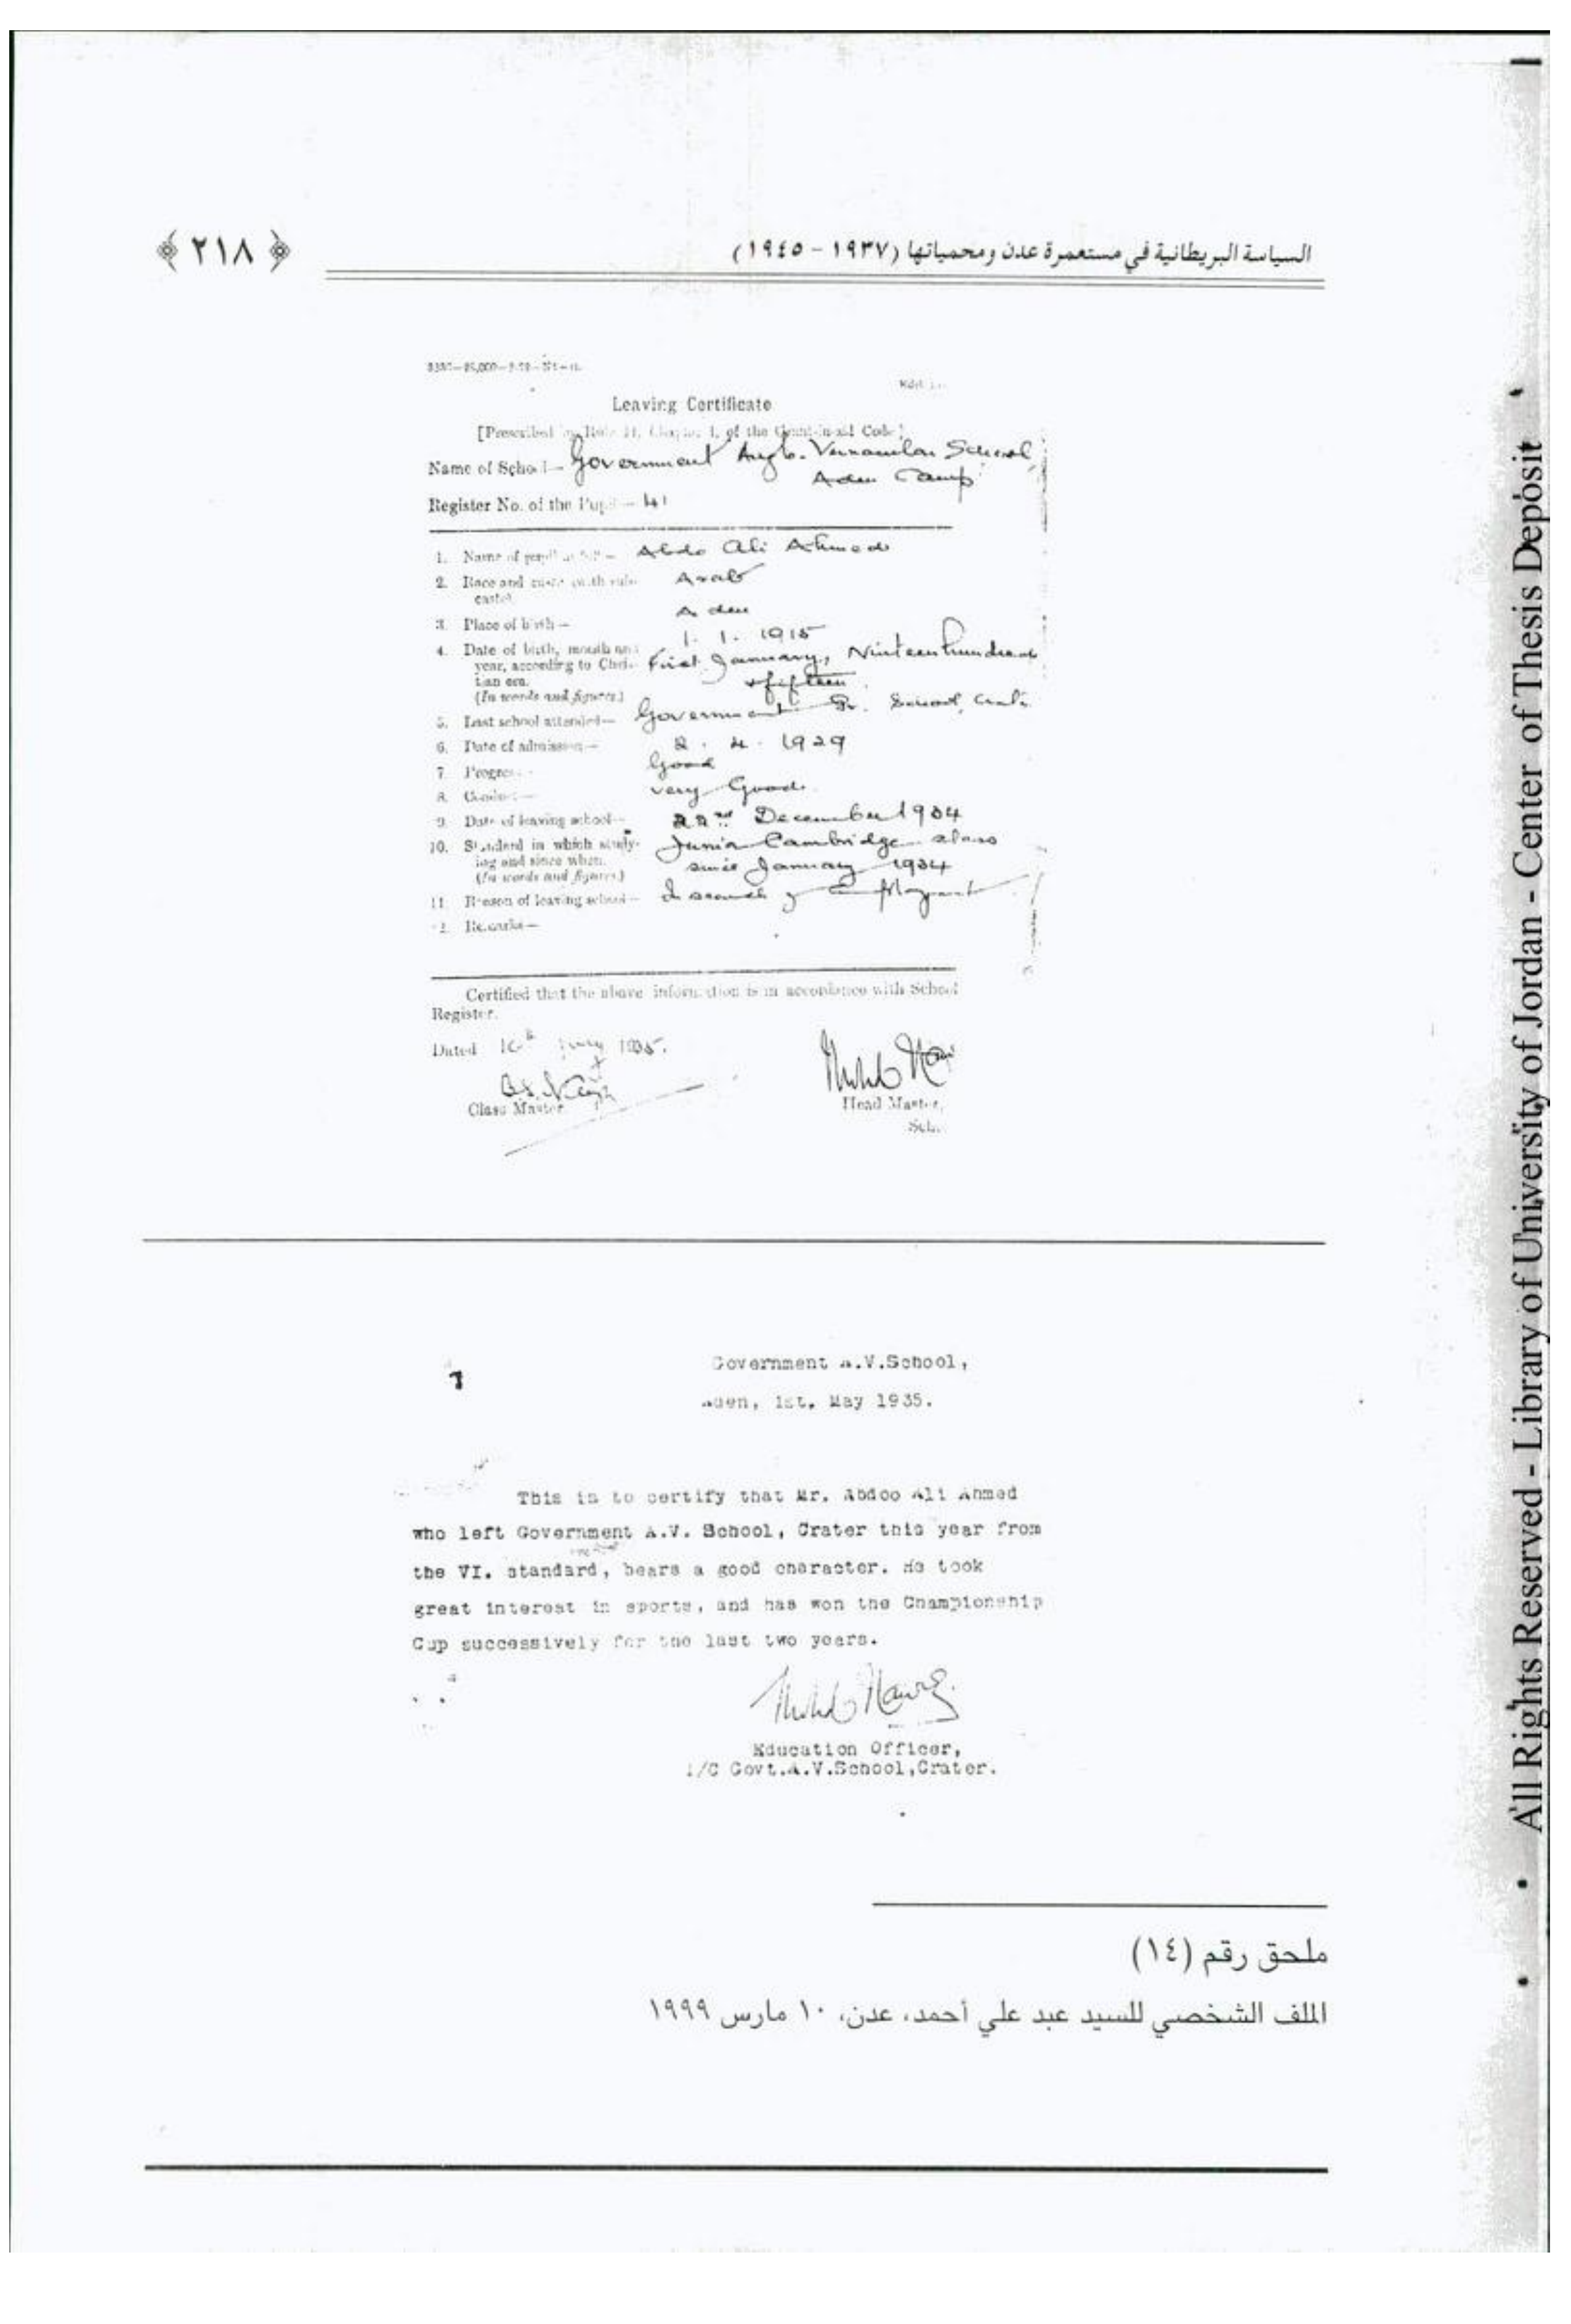 السياسة البريطانية في مستعمرة عدن ومحمياتها (١٩٣٧ - ١٩٤٥)
﴿ ٢١٨ ﴾
Leaving Certificate
[Prescribed by Rule 11, Chapter I, of the Grant-in-aid Code]
Name of School— Government Anglo-Vernacular School
Aden Camp
Register No. of the Pupil—
1. Name of pupil in full— Abdo Ali Ahmed
2. Race and caste (with sub-caste). Arab
3. Place of birth— Aden
4. Date of birth, month and 1. 1. 1915
year, according to Christian era. First January, Nineteen hundred
(In words and figures) & fifteen
5. Last school attended— Government Pr. School,
6. Date of admission— 2. 4. 1929
7. Progress— Good
8. Conduct— very Good
9. Date of leaving school— 22nd December 1934
10. Standard in which studying and since when. Junior Cambridge class
(In words and figures) since January 1934
11. Reason of leaving school— In search of Employment
12. Remarks—
Certified that the above information is in accordance with School
Register.
Dated 1935.
Class Master
Head Master,
Government A.V.School,
Aden, 1st. May 1935.
This is to certify that Mr. Abdoo Ali Ahmed
who left Government A.V. School, Crater this year from
the VI. standard, bears a good character. He took
great interest in sports, and has won the Championship
Cup successively for the last two years.
Education Officer,
I/C Govt.A.V.School,Crater.
ملحق رقم (١٤)
الملف الشخصي للسيد عبد علي أحمد، عدن، ١٠ مارس ١٩٩٩
All Rights Reserved - Library of University of Jordan - Center of Thesis Deposit